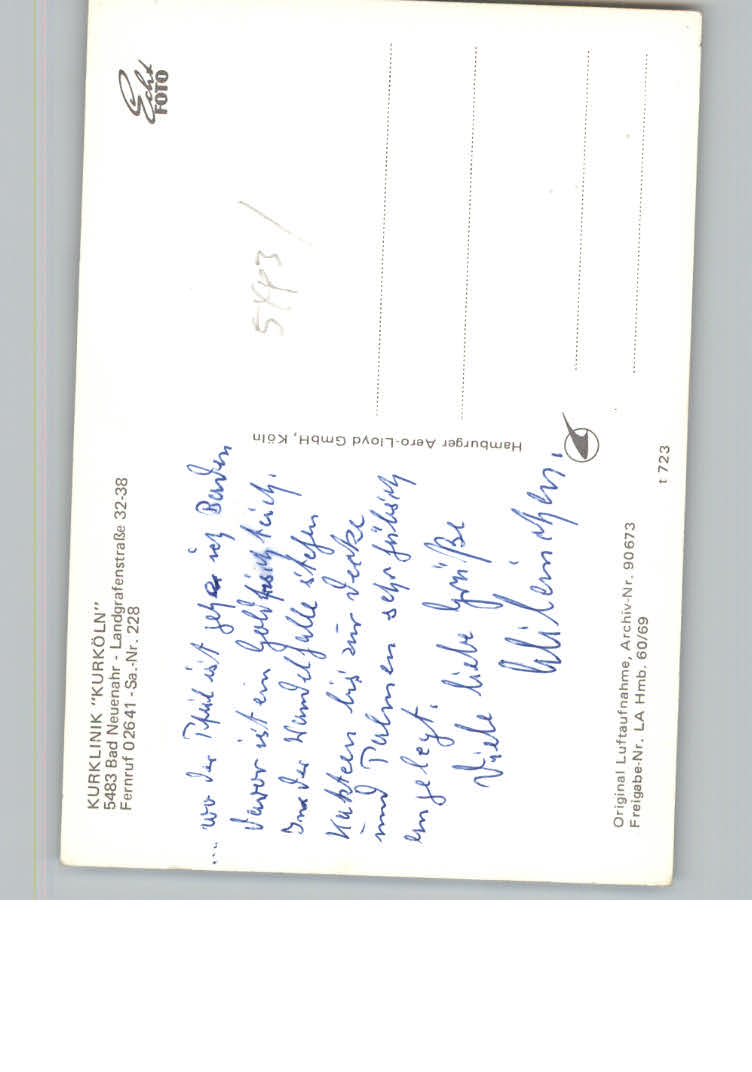 KURKLINIK "KURKÖLN"
5483 Bad Neuenahr - Landgrafenstraße 32-38
Fernruf 0 26 41 - Sa.-Nr. 228
... wo der Pfeil ist geh ich Baden
davor ist ein Goldfischteich.
In der Wandelhalle stehen
Kakteen bis zur Decke
und Palmen sehr hübsch
angelegt.
Viele liebe Grüße
Original Luftaufnahme, Archiv-Nr. 90673
Freigabe-Nr. LA Hmb. 60/69
t 723
Hamburger Aero-Lloyd GmbH, Köln
Echt
FOTO